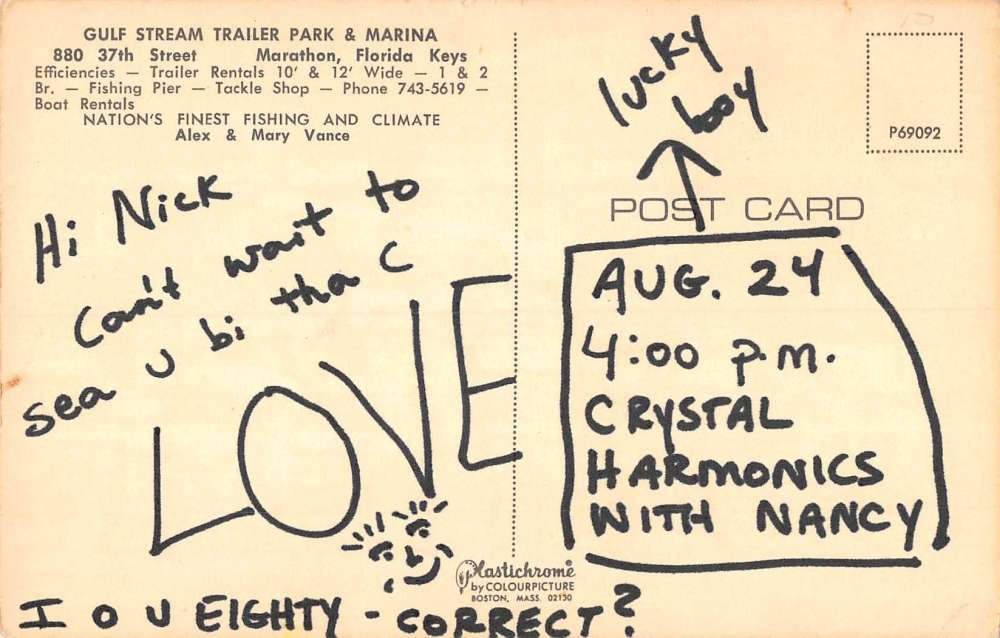 GULF STREAM TRAILER PARK & MARINA
880 37th Street Marathon, Florida Keys
Efficiencies — Trailer Rentals 10' & 12' Wide — 1 & 2
Br. — Fishing Pier — Tackle Shop — Phone 743-5619 —
Boat Rentals
NATION'S FINEST FISHING AND CLIMATE
Alex & Mary Vance
Hi Nick
Can't wait to
sea u bi tha C
LOVE
I O U EIGHTY - CORRECT?
Plastichrome
by COLOURPICTURE
BOSTON, MASS. 02130
lucky
boy
P69092
POST CARD
AUG. 24
4:00 p.m.
CRYSTAL
HARMONICS
WITH NANCY